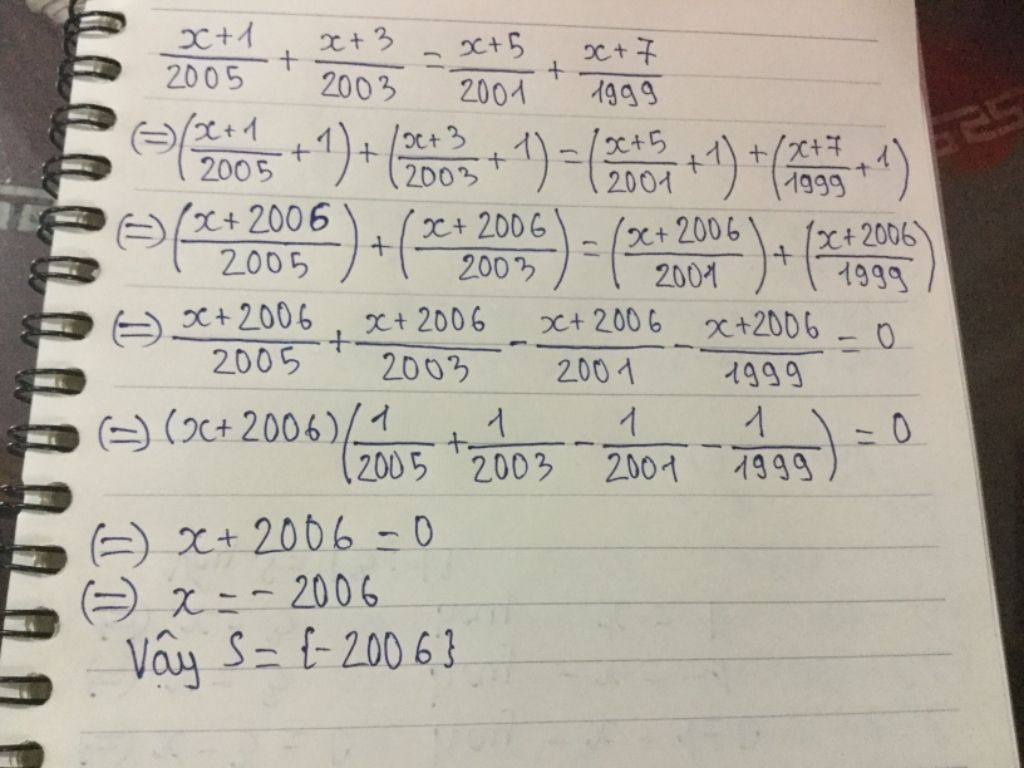 x+1/2005 + x+3/2003 = x+5/2001 + x+7/1999
(=) (x+1/2005 + 1) + (x+3/2003 + 1) = (x+5/2001 + 1) + (x+7/1999 + 1)
(=) (x+2006/2005) + (x+2006/2003) = (x+2006/2001) + (x+2006/1999)
(=) x+2006/2005 + x+2006/2003 - x+2006/2001 - x+2006/1999 = 0
(=) (x+2006)(1/2005 + 1/2003 - 1/2001 - 1/1999) = 0
(=) x+2006 = 0
(=) x = - 2006
Vây S = {-2006}